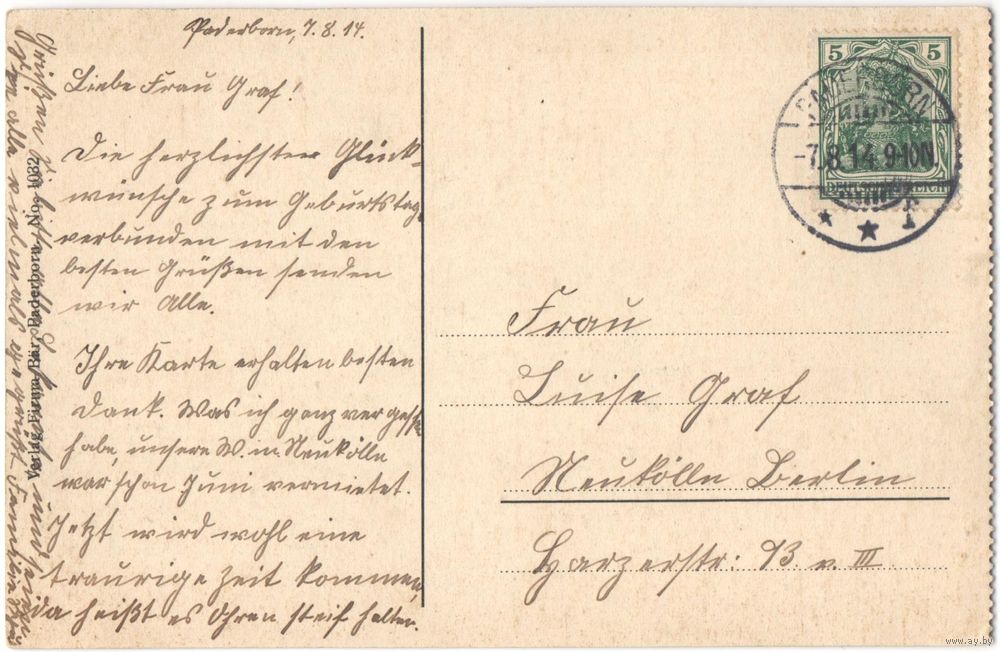 Paderborn, 7.8.14.
Liebe Frau Graf!
Die herzlichsten Glück-
wünsche zum Geburtstag
verbunden mit den
besten Grüßen senden
wir Alle.
Ihre Karte erhalten besten
Dank. Was ich ganz vergessen
habe, unsere W. in Neukölle
war schon Juni vermietet.
Jetzt wird wohl eine
traurige Zeit kommen,
da heißt es Ohren steif halten.
Grüßen Sie bitte
Sie alle vielmals gegrüßt Familie
Verlag, Firma Bär, Paderborn. No. 1032
5 5
DEUTSCHES REICH
PADERBORN
-7.8.14.9-10N.
* * f
Frau
Luise Graf
Neukölle Berlin
Harzerstr: 13 v. III
www.ay.by